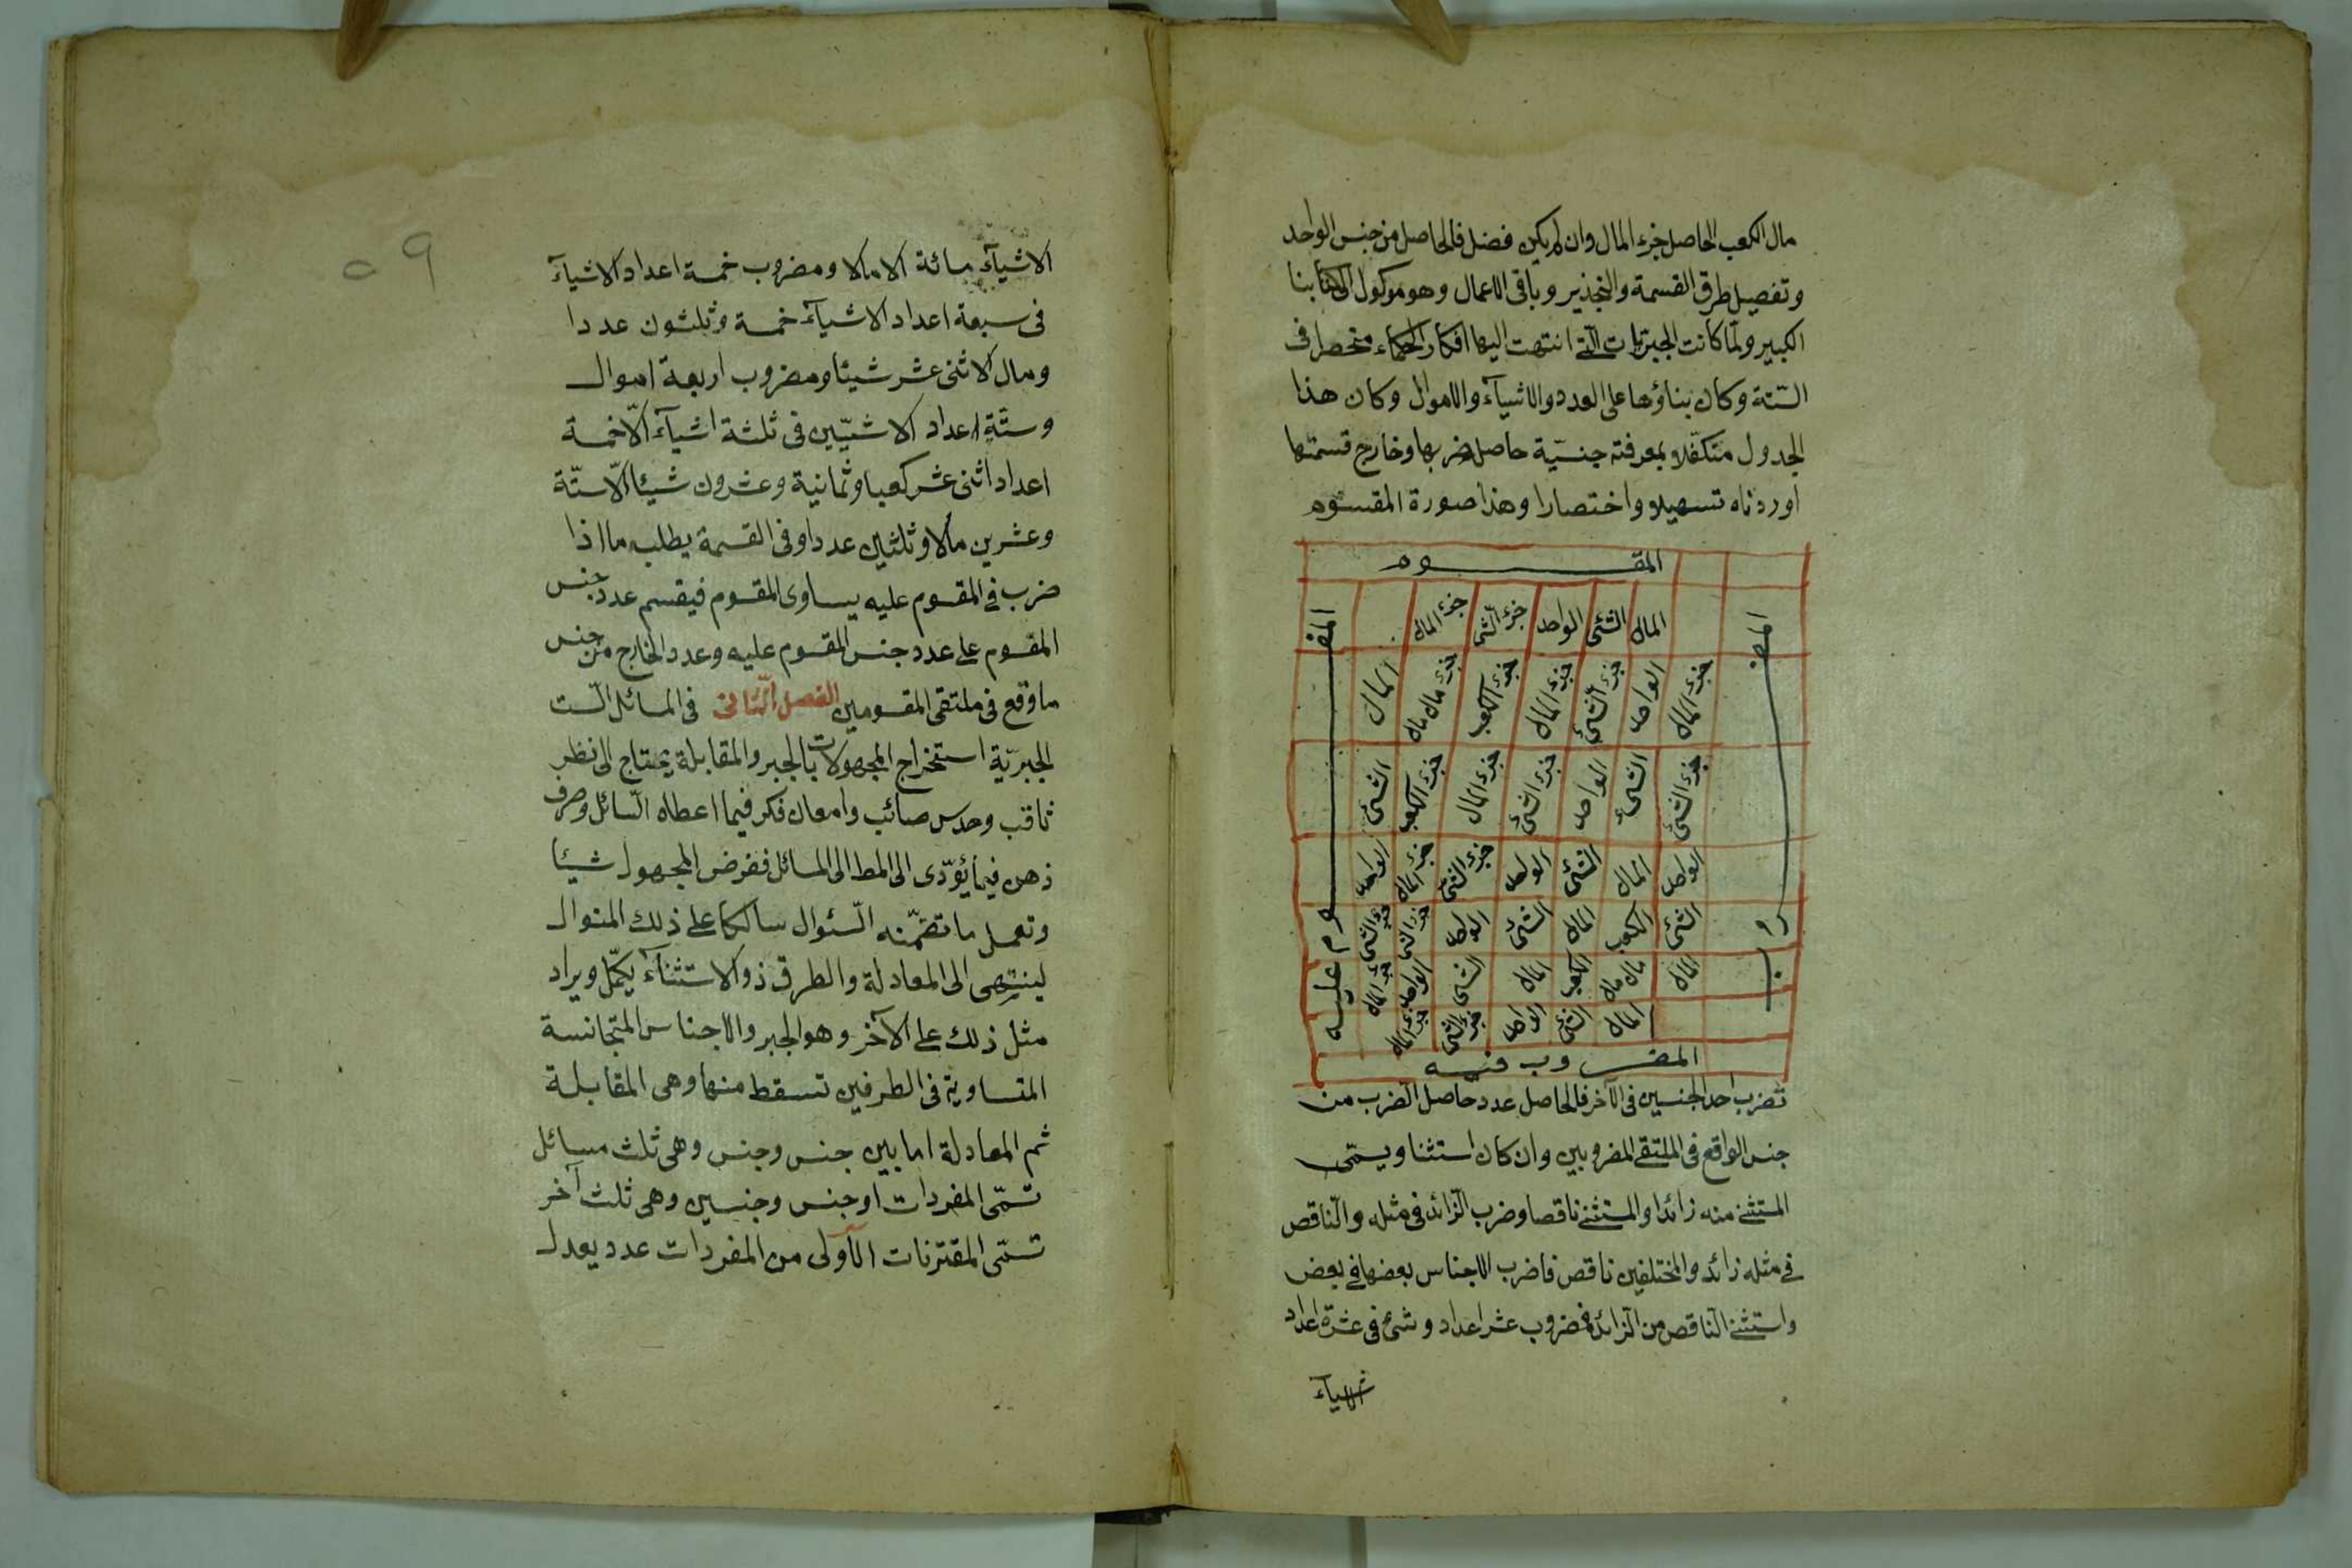 مال الكعب الحاصل جزء المال وان لم يكن فضل فالحاصل من جنس الواحد
وتفصيل طرق القسمة والتجذير وباقى الاعمال وهو موكول الى كتابنا
الكبير ولما كانت الجبريات التى انتهت اليها افكار الحكماء منحصرا فى
الستة وكان بناؤها على العدد والاشيآء والاموال وكان هذا
الجدول متكفلا بمعرفته جنسيّة حاصل ضربها وخارج قسمتها
اوردناه تسهيلا واختصارا وهذا صورة المقسوم
المقسوم
المال الشئ الواحد جزء الشئ جزء المال
جزء المال الواحد جزء الشئ جزء المال جزء الكعب جزء مال مال المال
جزء الشئ الشئ الواحد جزء الشئ جزء المال جزء الكعب الشئ
الواحد المال الشئ الواحد جزء الشئ جزء المال الواحد
الشئ الكعب المال الشئ الواحد جزء الشئ جزء الشئ
المال مال مال الكعب المال الشئ الواحد جزء المال
المال الشئ الواحد جزء الشئ جزء المال
المضروب
المقسوم عليه
المضروب فيه
تضرب احد الجنسين فى الآخر فالحاصل عدد حاصل الضرب من
جنس الواقع فى الملتقى المضروبين وان كان استثنا ويسمّى
المستثنى منه زائدا والمستثنى ناقصا وضرب الزائد فى مثله والناقص
فى مثله زائد والمختلفين ناقص فاضرب الاجناس بعضها فى بعض
واستثن الناقص من الزائد فمضروب عشر اعداد وشئ فى عشرة اعداد
الاشيآء
٥٩
الاشيآء مائة الا مالا ومضروب خمسة اعداد الاشيآء
فى سبعة اعداد الاشيآء خمسة وثلثون عددا
ومال الا اثنى عشر شيئا ومضروب اربعة اموال
وستّة اعداد الا شيّين فى ثلثة اشيآء الّا خمسة
اعداد اثنى عشر كعبا وثمانية وعشرون شيئا الّا ستّة
وعشرين مالا وثلثين عددا وفى القسمة يطلب ما اذا
ضرب فى المقسوم عليه يساوى المقسوم فيقسم عدد جنس
المقسوم على عدد جنس المقسوم عليه وعدد الخارج من جنس
ما وقع فى ملتقى المقسومين الفصل الثّانى فى المسائل الست
الجبريّة استخراج المجهولات بالجبر والمقابلة يحتاج الى نظر
ثاقب وحدس صائب وامعان فكر فيما اعطاه السّائل وصرف
ذهن فيما يؤدّى الى المط الى المسائل ففرض المجهول شيئا
وتعمل ما تضمّنه السّئوال سالكا على ذلك المنوال
لينتهى الى المعادلة والطرق ذو الاستثنآء يكمّل ويراد
مثل ذلك على الآخر وهو الجبر والاجناس المتجانسة
المتساوية فى الطرفين تسقط منها وهى المقابلة
ثم المعادلة اما بين جنس وجنس وهى ثلث مسائل
تسمّى المفردات او جنس وجنسين وهى ثلث آخر
تسمّى المقترنات الآولى من المفردات عدد يعدل